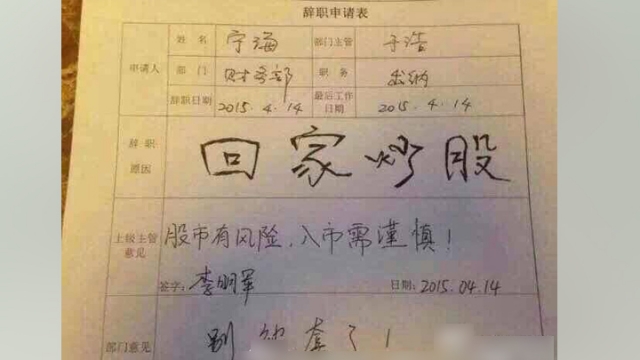 辞职申请表
姓名 宁海 部门主管 于浩
申请人 部门 财务部 职务 出纳
辞职日期 2015.4.14 最后工作日期 2015.4.14
辞职原因 回家炒股
上级主管意见 股市有风险、入市需谨慎!
签字: 李明军 日期: 2015.04.14
部门意见 别被套了!